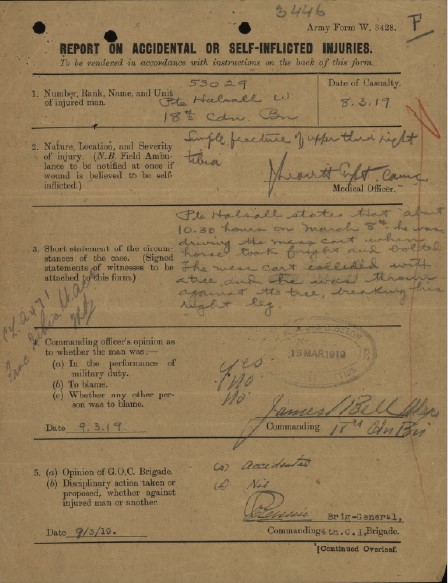 3446
Army Form W. 3428.
REPORT ON ACCIDENTAL OR SELF-INFLICTED INJURIES.
To be rendered in accordance with instructions on the back of this form.
1. Number, Rank, Name, and Unit of injured man.
53029
Pte Halsall W
18th Cdn. Bn
Date of Casualty.
8.3.19
2. Nature, Location, and Severity
of injury. (N.B. Field Ambu-
lance to be notified at once if
wound is believed to be self-
inflicted.)
Simple fracture of upper third right
tibia
Capt. CAMC
Medical Officer.
3. Short statement of the circum-
stances of the case. (Signed
statements of witnesses to be
attached to this form.)
Pte Halsall states that about
10.30 hours on March 8th he was
driving the mess cart when
horse took fright and bolted
The mess cart collided with
a tree and he was thrown
against the tree, breaking his
right leg.
Frac Tibia
Commanding officer's opinion as
to whether the man was:—
(a) In the performance of
military duty.
(b) To blame.
(c) Whether any other per-
son was to blame.
Yes.
No
No.
15 MAR 1919
Date 9.3.19.
James Bell Major
Commanding 18th Cdn Bn
5. (a) Opinion of G.O.C. Brigade.
(b) Disciplinary action taken or
proposed, whether against
injured man or another.
(a) Accidental
(b) Nil
Brig-General,
Date 9/3/19.
Commanding 4th.C.I. Brigade.
[Continued Overleaf.